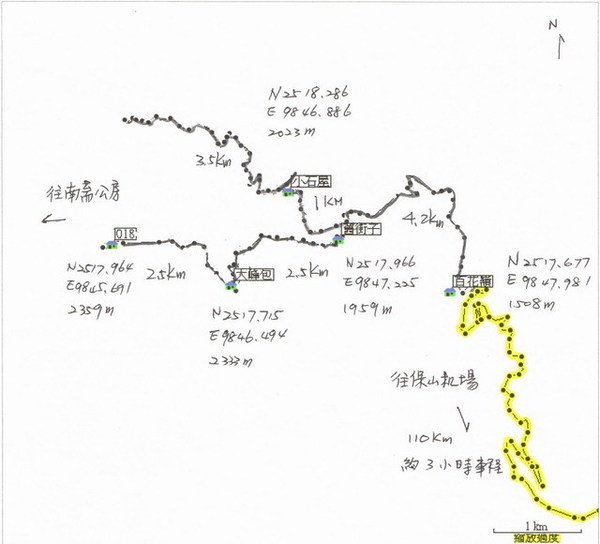 N
N2518.286
E 9846.886
2023m
3.5Km
小石屋
1KM
往南齋公房
018
舊街子
4.2km
N2517.964
E9845.691
2359m
2.5Km
大啞包
2.5Km
N2517.966
E9847.225
1959m
百花嶺
N2517.677
E9847.981
1508m
N2517.715
E9846.494
2333m
往保山机場
110Km
約3小時車程
1 km
縮放過度